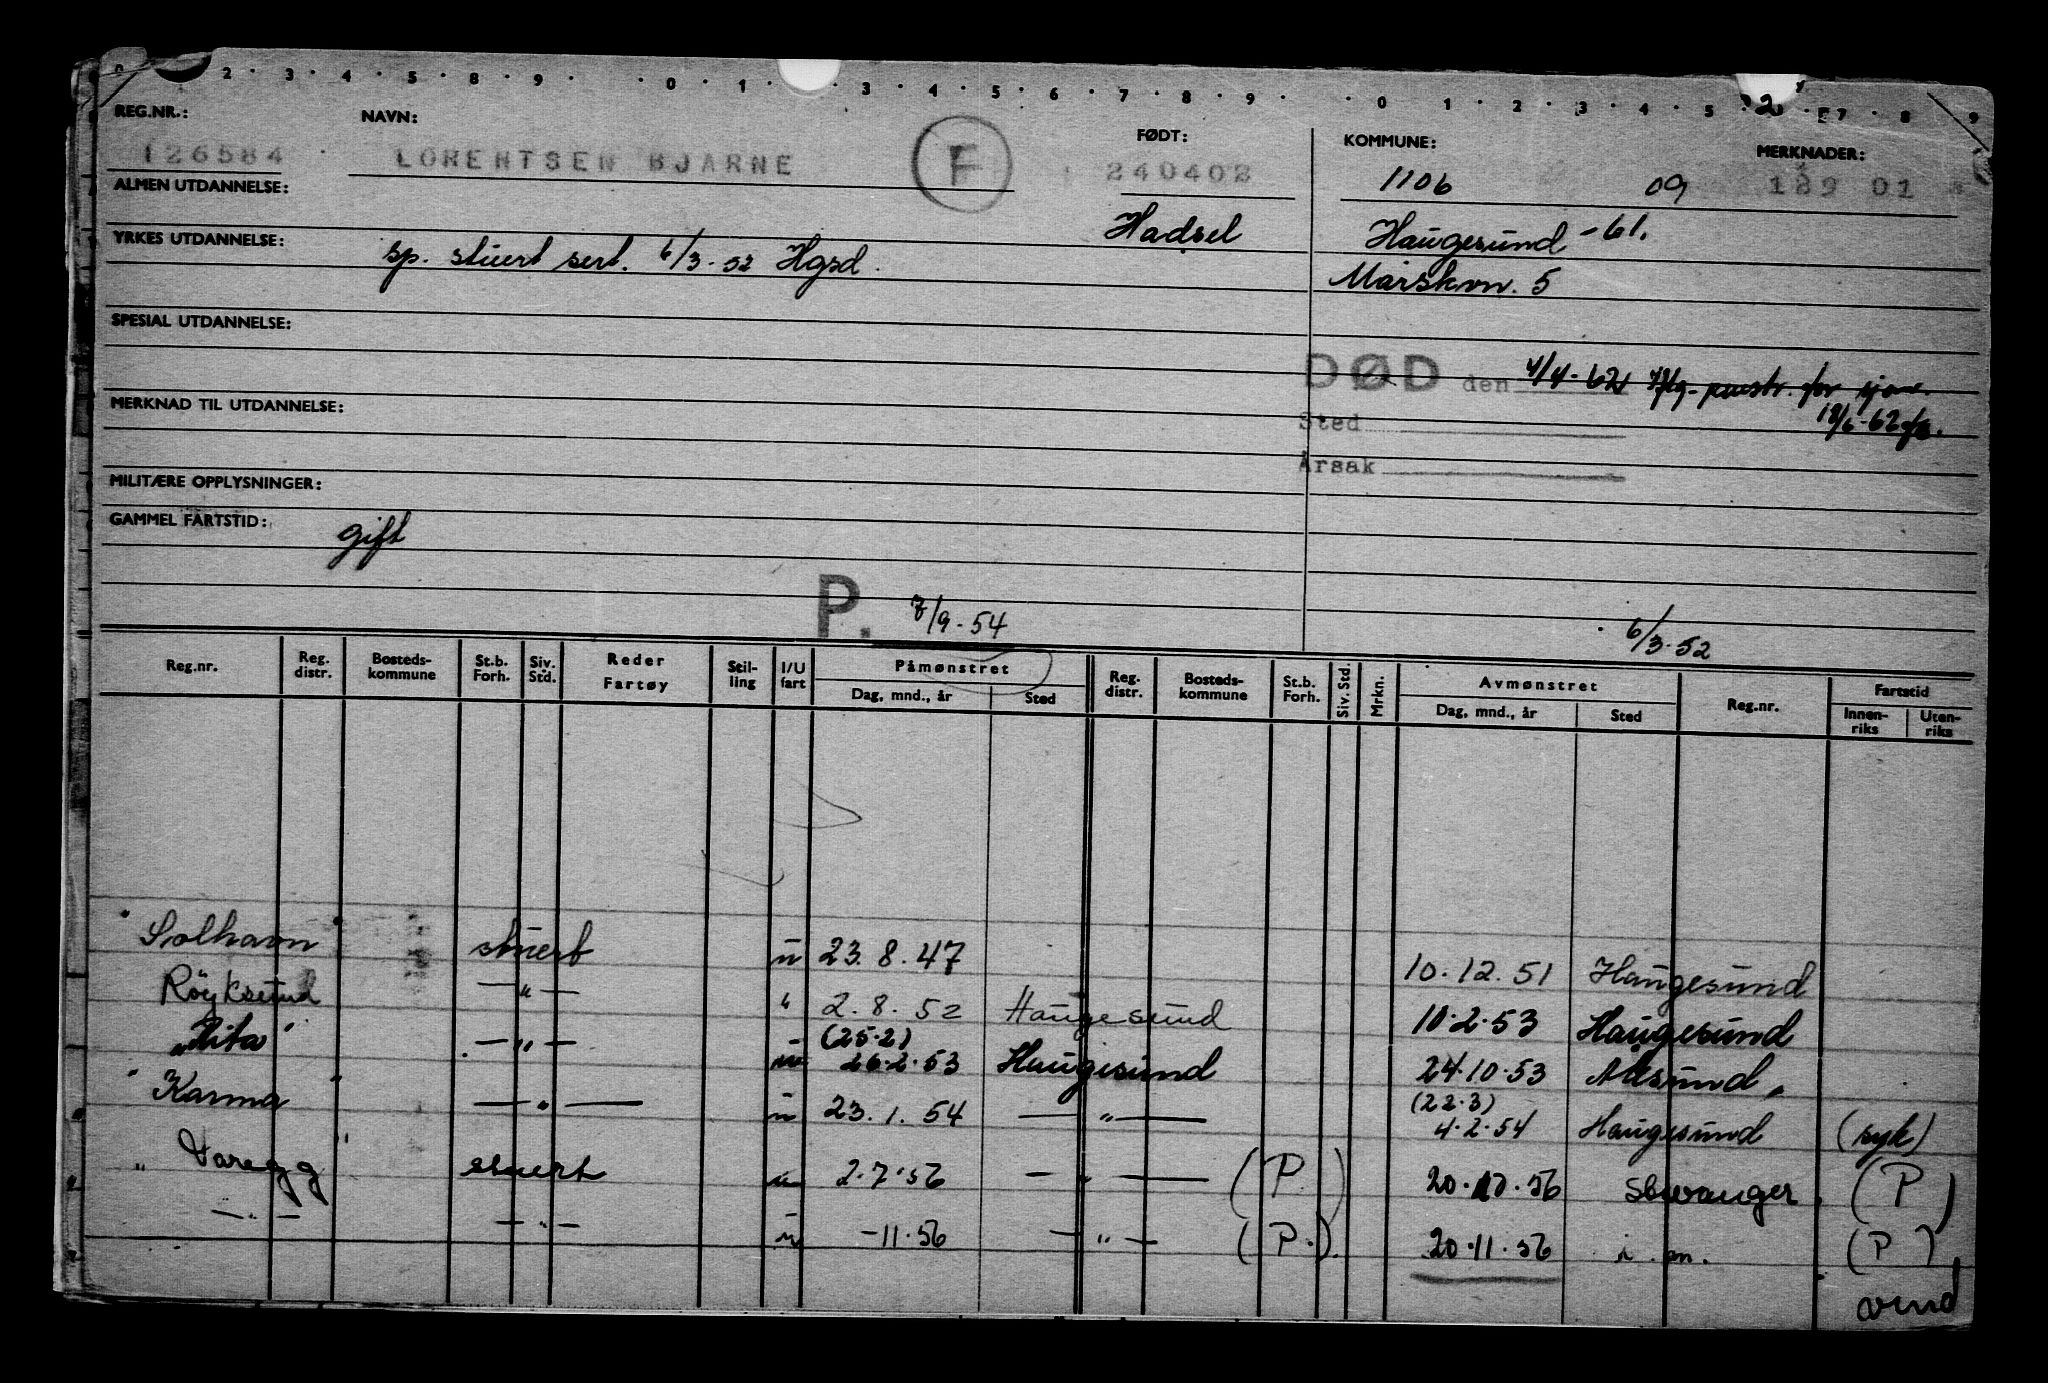 2 · 3 · 4 · 5 · 8 · 9 · · 0 · 1 · · 3 · 4 · 5 · 6 · 7 · 8 · 9 · · 0 · 1 · 2 · 3 · 4 · 5 · 2 7 · 8 · 9
REG.NR.: NAVN: FØDT: KOMMUNE: MERKNADER:
126584 LORENTSEN BJARNE F 240402 1106 09 129 01
ALMEN UTDANNELSE: Hadsel Haugesund -61.
YRKES UTDANNELSE: sp. stuert sert. 6/3-52 Hgsd. Mårskvn. 5
SPESIAL UTDANNELSE:
DØD den 4/4-62 Iflg. for
MERKNAD TIL UTDANNELSE: Sted 18/6-62
Årsak
MILITÆRE OPPLYSNINGER:
GAMMEL FARTSTID: gift
P. 7/9-54 6/3-52
Reg.nr. Reg. distr. Bosteds-kommune St.b. Forh. Siv. Std. Reder Fartøy Stil-ling I/U fart Påmønstret Dag, mnd., år Sted Reg. distr. Bosteds-kommune St.b. Forh. Siv. Std. Mrkn. Avmønstret Dag, mnd., år Sted Reg.nr. Fartstid Innen-riks Uten-riks
"Solhavn" stuert u 23.8.47 10.12.51 Haugesund
Röyksund — " — " 2.8.52 Haugesund 10.2.53 Haugesund
"Rita" — " — u (25.2) 26.2.53 Haugesund 24.10.53 Ålesund
"Karma" — " — u 23.1.54 — " — (22.3) 4.2.54 Haugesund (syk)
"Varegg" stuert u 2.7.56 — " — (P) 20.10.56 Stavanger (P)
— " — — " — u -11.56 — " — (P.) 20.11.56 i.m. (P)
vend